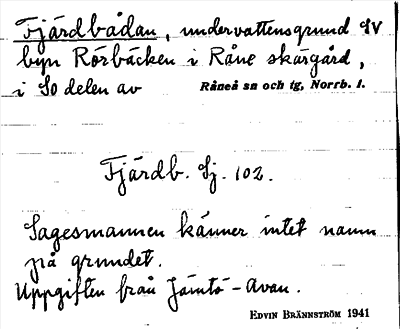 Fjärdbådan, undervattensgrund SV
byn Rörbäcken i Råne skärgård,
i So delen av Råneå sn och tg, Norrb. l.
Fjärdb. Sj. 102.
Sagesmannen känner intet namn
på grundet.
Uppgiften från Jämtö-Avan.
EDVIN BRÄNNSTRÖM 1941